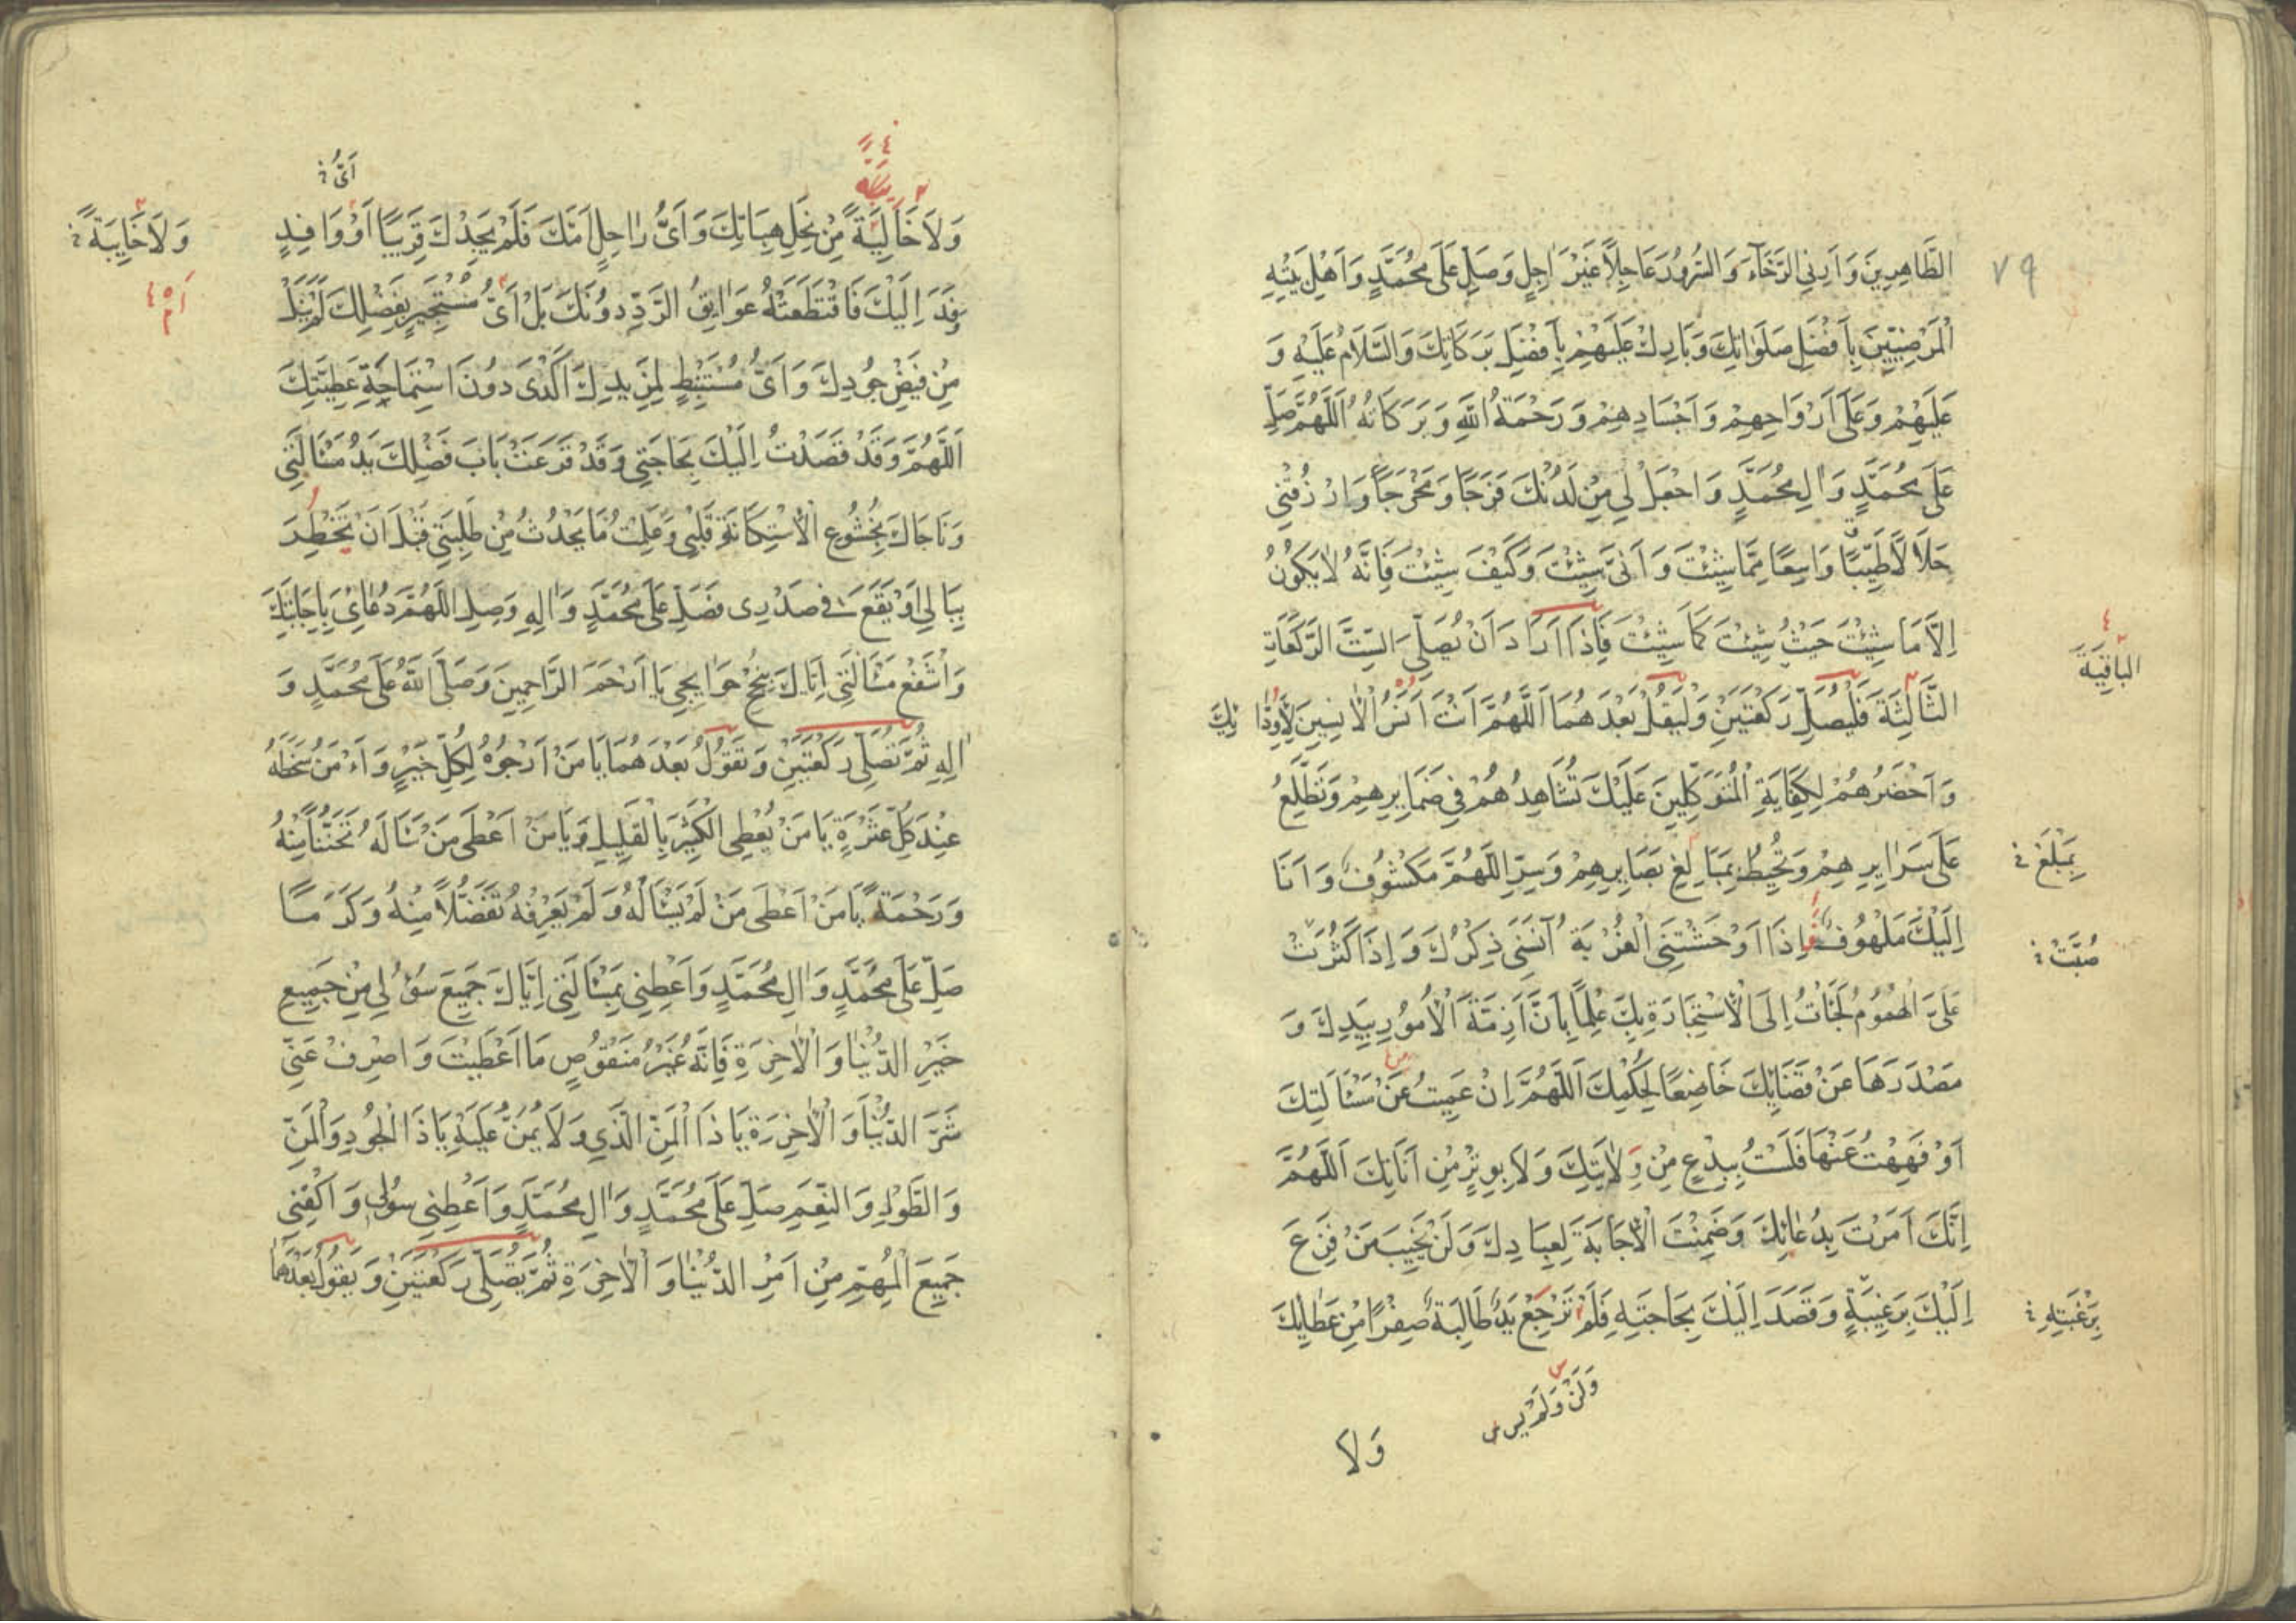 ٧٩
الطَّاهِرِينَ وَاَرِنِي الرَّخَآءَ وَالسُّرُورَ عَاجِلًا غَيْرَ اٰجِلٍ وَصَلِّ عَلَى مُحَمَّدٍ وَاَهْلِ بَيْتِهِ
الْمَرْضِيِّينَ بِاَفْضَلِ صَلَوَاتِكَ وَبَارِكْ عَلَيْهِمْ بِاَفْضَلِ بَرَكَاتِكَ وَالسَّلَامُ عَلَيْهِ وَ
عَلَيْهِمْ وَعَلَى اَرْوَاحِهِمْ وَاَجْسَادِهِمْ وَرَحْمَةُ اللّٰهِ وَبَرَكَاتُهُ اَللّٰهُمَّ صَلِّ
عَلَى مُحَمَّدٍ وَاٰلِ مُحَمَّدٍ وَاجْعَلْ لِي مِنْ لَدُنْكَ فَرَجًا وَمَخْرَجًا وَارْزُقْنِي
حَلَالًا طَيِّبًا وَاسِعًا مِمَّا شِئْتَ وَاَنَّى شِئْتَ وَكَيْفَ شِئْتَ فَاِنَّهُ لَا يَكُونُ
اِلَّا مَا شِئْتَ حَيْثُ شِئْتَ كَمَا شِئْتَ فَاِذَا اَرَادَ اَنْ يُصَلِّيَ السِّتَّ الرَّكَعَاتِ
الباقِيَةَ
الثَّالِثَةَ فَلْيُصَلِّ رَكْعَتَيْنِ وَلْيَقُلْ بَعْدَهُمَا اَللّٰهُمَّ اَنْتَ اٰنَسُ الْاٰنِسِينَ لِاَوِدَّائِكَ
وَاَحْضَرُهُمْ لِكِفَايَةِ الْمُتَوَكِّلِينَ عَلَيْكَ تُشَاهِدُهُمْ فِي ضَمَايِرِهِمْ وَتَطَّلِعُ
عَلَى سَرَايِرِهِمْ وَتُحِيطُ بِمَبَالِغِ بَصَايِرِهِمْ وَسِرِّ اللّٰهُمَّ مَكْشُوفٌ وَاَنَا
بِمَبْلَغِ
اِلَيْكَ مَلْهُوفٌ فَاِذَا اَوْحَشَتْنِي الْغُرْبَةُ اٰنَسَنِي ذِكْرُكَ وَاِذَا كَثُرَتْ
صُبَّتْ
عَلَيَّ الْهُمُومُ لَجَأْتُ اِلَى الْاِسْتِجَارَةِ بِكَ عِلْمًا بِاَنَّ اَزِمَّةَ الْاُمُورِ بِيَدِكَ وَ
مَصْدَرَهَا عَنْ قَضَائِكَ خَاضِعًا لِحُكْمِكَ اَللّٰهُمَّ اِنْ عَمِيتُ عَنْ مَسْأَلَتِكَ
اَوْ فَهِهْتُ عَنْهَا فَلَسْتُ بِبِدْعٍ مِنْ وِلَايَتِكَ وَلَا بِوِتْرٍ مِنْ اَنَاتِكَ اَللّٰهُمَّ
اِنَّكَ اَمَرْتَ بِدُعَائِكَ وَضَمِنْتَ الْاِجَابَةَ لِعِبَادِكَ وَلَنْ يَخِيبَ مَنْ فَزِعَ
اِلَيْكَ بِرَغْبَةٍ وَقَصَدَ اِلَيْكَ بِحَاجَتِهِ فَلَمْ تَرْجِعْ يَدٌ طَالِبَةٌ صِفْرًا مِنْ عَطَائِكَ
بِرَغْبَتِهِ
وَلَنْ وَلَمْ
وَلَا
اَيُّ
وَلَا خَالِيَةً مِنْ نِحَلِ هِبَاتِكَ وَاَيُّ رَاحِلٍ اَمَّكَ فَلَمْ يَجِدْكَ قَرِيبًا اَوْ وَافِدٍ
وَلَا خَايِبَةً
وَفَدَ اِلَيْكَ فَاقْتَطَعَتْهُ عَوَايِقُ الرَّدِّ دُونَكَ بَلْ اَيُّ مُسْتَجِيرٍ بِفَضْلِكَ لَمْ يَنَلْ
مِنْ فَيْضِ جُودِكَ وَاَيُّ مُسْتَنْبِطٍ لِمَزِيدِكَ اَكْدَى دُونَ اسْتِمَاحَةِ عَطِيَّتِكَ
اَللّٰهُمَّ وَقَدْ قَصَدْتُ اِلَيْكَ بِحَاجَتِي وَقَدْ قَرَعَتْ بَابَ فَضْلِكَ يَدُ مَسْأَلَتِي
وَنَاجَاكَ بِخُشُوعِ الْاِسْتِكَانَةِ قَلْبِي وَعَلِمْتُ مَا يَحْدُثُ مِنْ طَلِبَتِي قَبْلَ اَنْ يَخْطُرَ
بِبَالِي اَوْ يَقَعَ فِي صَدْرِي فَصَلِّ عَلَى مُحَمَّدٍ وَاٰلِهِ وَصِلِ اللّٰهُمَّ دُعَائِيَ بِاِجَابَتِكَ
وَاشْفَعْ مَسْأَلَتِي اِيَّاكَ بِنُجْحِ حَوَايِجِي يَا اَرْحَمَ الرَّاحِمِينَ وَصَلَّى اللّٰهُ عَلَى مُحَمَّدٍ وَ
اٰلِهِ ثُمَّ تُصَلِّي رَكْعَتَيْنِ وَتَقُولُ بَعْدَهُمَا يَا مَنْ اَرْجُوهُ لِكُلِّ خَيْرٍ وَاٰمَنُ سَخَطَهُ
عِنْدَ كُلِّ عَثْرَةٍ يَا مَنْ يُعْطِي الْكَثِيرَ بِالْقَلِيلِ وَيَا مَنْ اَعْطَى مَنْ سَأَلَهُ تَحَنُّنًا مِنْهُ
وَرَحْمَةً يَا مَنْ اَعْطَى مَنْ لَمْ يَسْأَلْهُ وَلَمْ يَعْرِفْهُ تَفَضُّلًا مِنْهُ وَكَرَمًا
صَلِّ عَلَى مُحَمَّدٍ وَاٰلِ مُحَمَّدٍ وَاَعْطِنِي بِمَسْأَلَتِي اِيَّاكَ جَمِيعَ سُؤْلِي مِنْ جَمِيعِ
خَيْرِ الدُّنْيَا وَالْاٰخِرَةِ فَاِنَّهُ غَيْرُ مَنْقُوصٍ مَا اَعْطَيْتَ وَاصْرِفْ عَنِّي
شَرَّ الدُّنْيَا وَالْاٰخِرَةِ يَا ذَا الْمَنِّ الَّذِي وَلَا يُمَنُّ عَلَيْهِ يَا ذَا الْجُودِ وَالْمَنِّ
وَالطَّوْلِ وَالنِّعَمِ صَلِّ عَلَى مُحَمَّدٍ وَاٰلِ مُحَمَّدٍ وَاَعْطِنِي سُؤْلِي وَاكْفِنِي
جَمِيعَ الْمُهِمِّ مِنْ اَمْرِ الدُّنْيَا وَالْاٰخِرَةِ ثُمَّ يُصَلِّي رَكْعَتَيْنِ وَيَقُولُ بَعْدَهُمَا